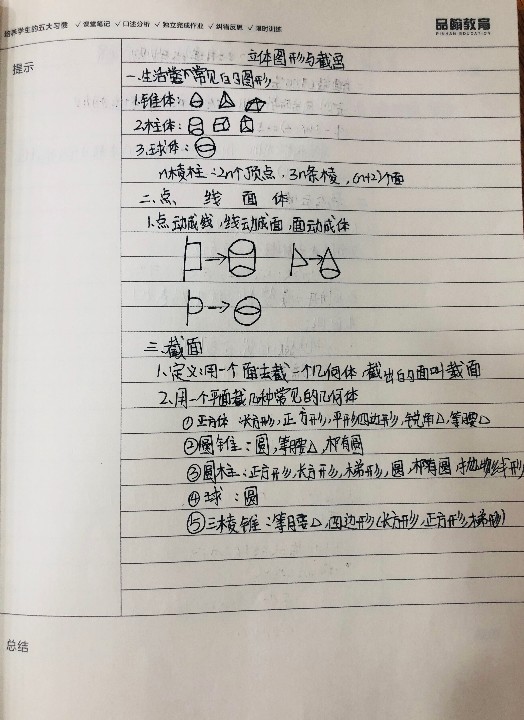 培养学生的五大习惯 ✓课堂笔记 ✓口述分析 ✓独立完成作业 ✓纠错反思 ✓限时训练
品翰教育
PINHAN EDUCATION
提示
立体图形与截面
一.生活中常见的图形
1.锥体:
2.柱体:
3.球体:
n棱柱:2n个顶点,3n条棱,(n+2)个面
二.点 线 面 体
1.点动成线,线动成面,面动成体
三.截面
1.定义:用一个面去截一个几何体,截出的面叫截面
2.用一个平面截几种常见的几何体
①正方体 长方形,正方形,平形四边形,锐角△,等腰△
②圆锥:圆,等腰△,椭圆
③圆柱:正方形,长方形,梯形,圆,椭圆
④球:圆
⑤三棱锥:等腰△,四边形(长方形,正方形,梯形)
总结